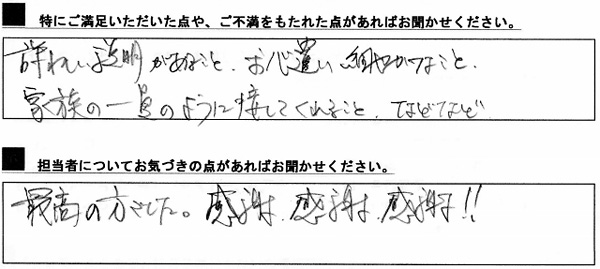 ■ 特にご満足いただいた点や、ご不満をもたれた点があればお聞かせください。
詳れい説明があること、お心遣い細やかなこと、
家族の一員のように接してくれること、などなど
■ 担当者についてお気づきの点があればお聞かせください。
最高の方でした。感謝、感謝、感謝!!